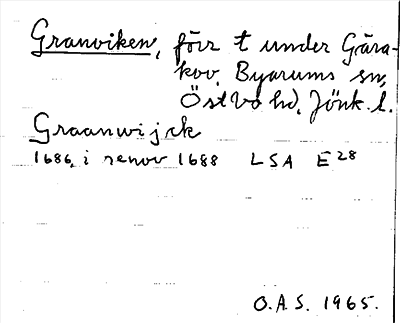 Granviken, förr t under Gåra-
kov, Byarums sn,
Östbo hd, Jönk. l.
Graanwijck
1686, i renov 1688 LSA E28
O.A.S. 1965.